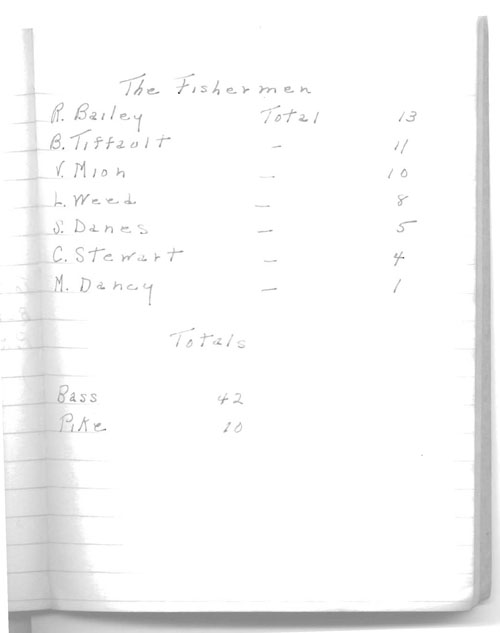 The Fishermen
R. Bailey Total 13
B. Tiffault — 11
V. Mion — 10
L. Weed — 8
S. Danes — 5
C. Stewart — 4
M. Dancy — 1
Totals
Bass 42
Pike 10